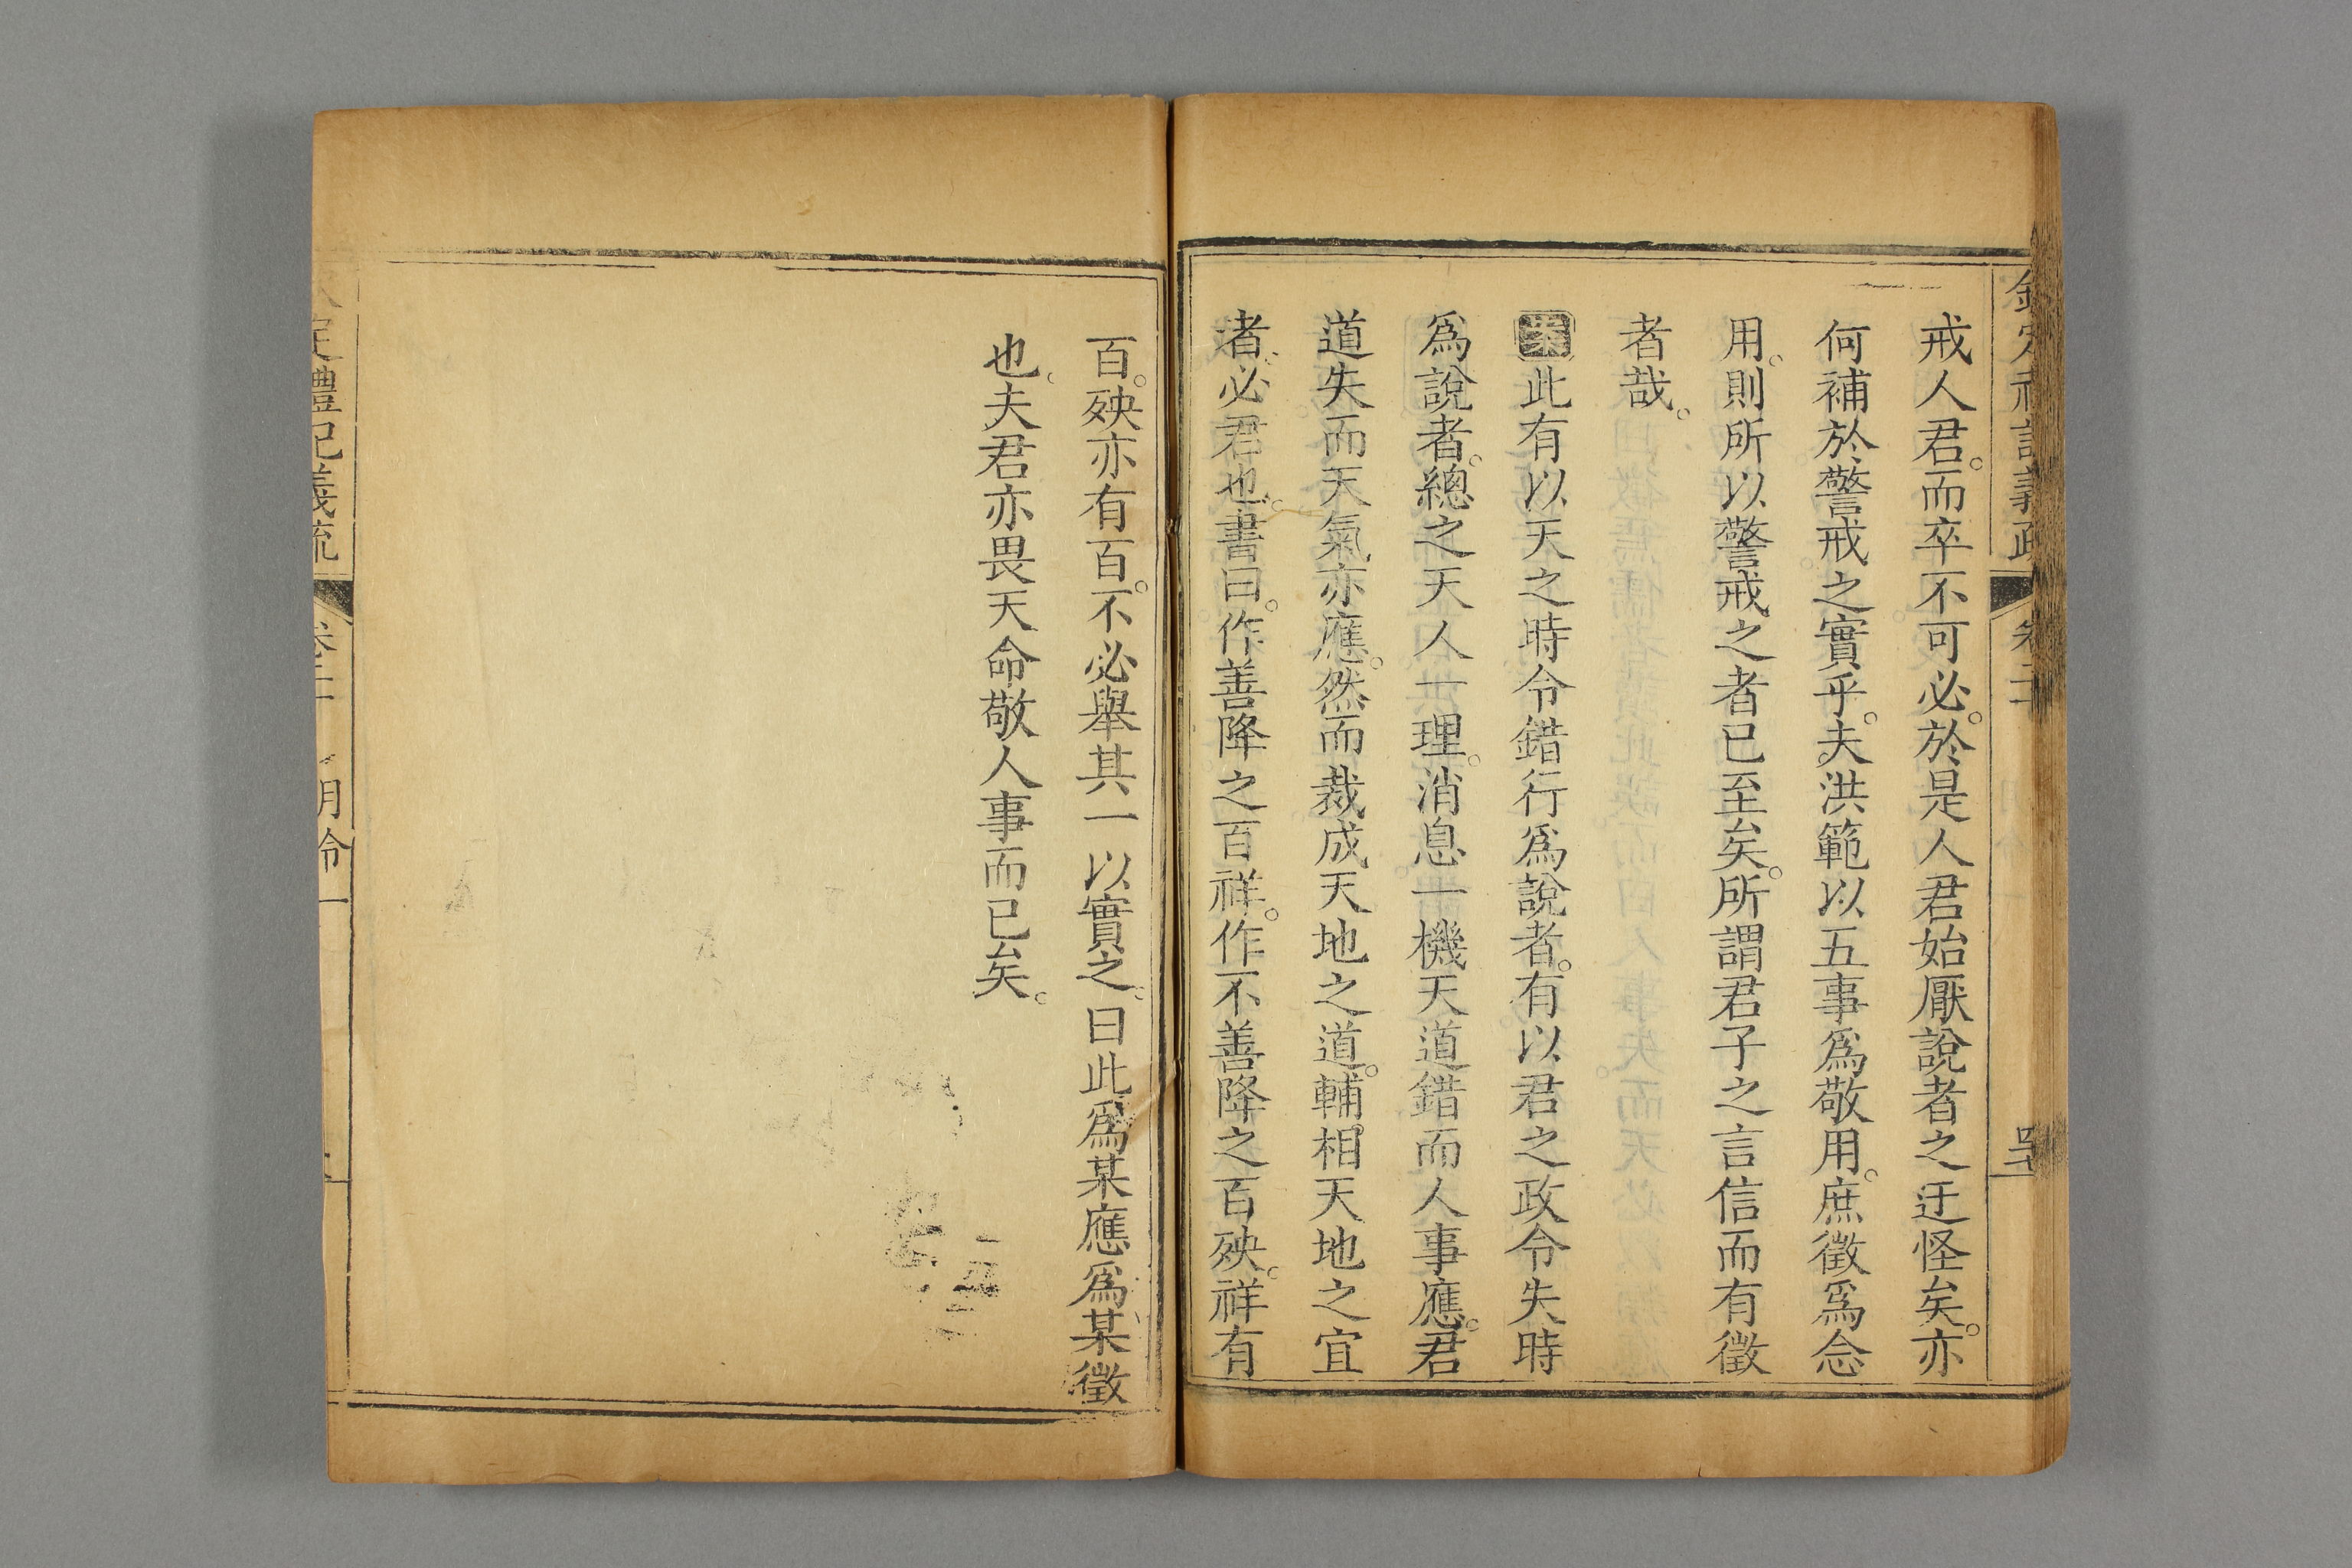 戒人君。而卒不可必。於是人君始厭說者之迂怪矣。亦
何補於警戒之實乎。夫洪範以五事爲敬用。庶徵爲念
用。則所以警戒之者已至矣。所謂君子之言信而有徵
者哉。
案此有以天之時令錯行爲說者。有以君之政令失時
爲說者。總之天人一理。消息一機天道錯而人事應。君
道失而天氣亦應。然而裁成天地之道。輔相天地之宜
者。必君也。書曰。作善降之百祥。作不善降之百殃。祥有
百。殃亦有百。不必舉其一以實之。曰此爲某應爲某徵
也。夫君亦畏天命敬人事而已矣。
定禮記義疏
月令一